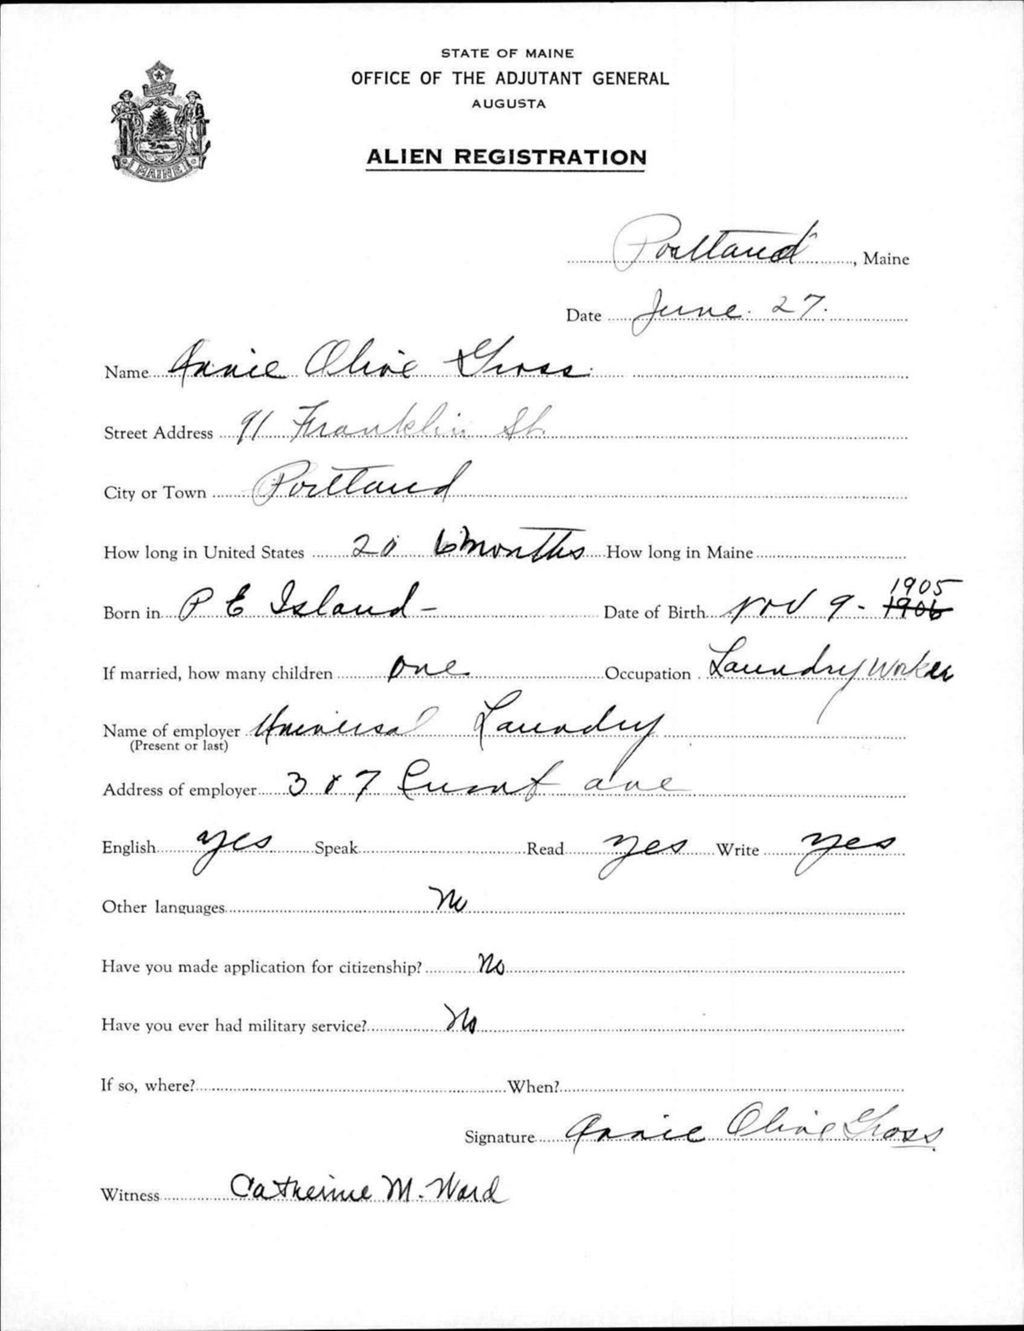 STATE OF MAINE
OFFICE OF THE ADJUTANT GENERAL
AUGUSTA
ALIEN REGISTRATION
MAINE
Portland, Maine
Date June 27.
Name Annie Olive Gross
Street Address 91 Franklin St.
City or Town Portland
How long in United States 20 6 months How long in Maine
Born in P E Island - Date of Birth Nov 9 - 1905 1906
If married, how many children one Occupation Laundry Worker
Name of employer Universal Laundry
(Present or last)
Address of employer ave
English yes Speak Read yes Write yes
Other languages No
Have you made application for citizenship? No
Have you ever had military service? No
If so, where? When?
Signature Annie Olive Gross
Witness Catherine M. Ward